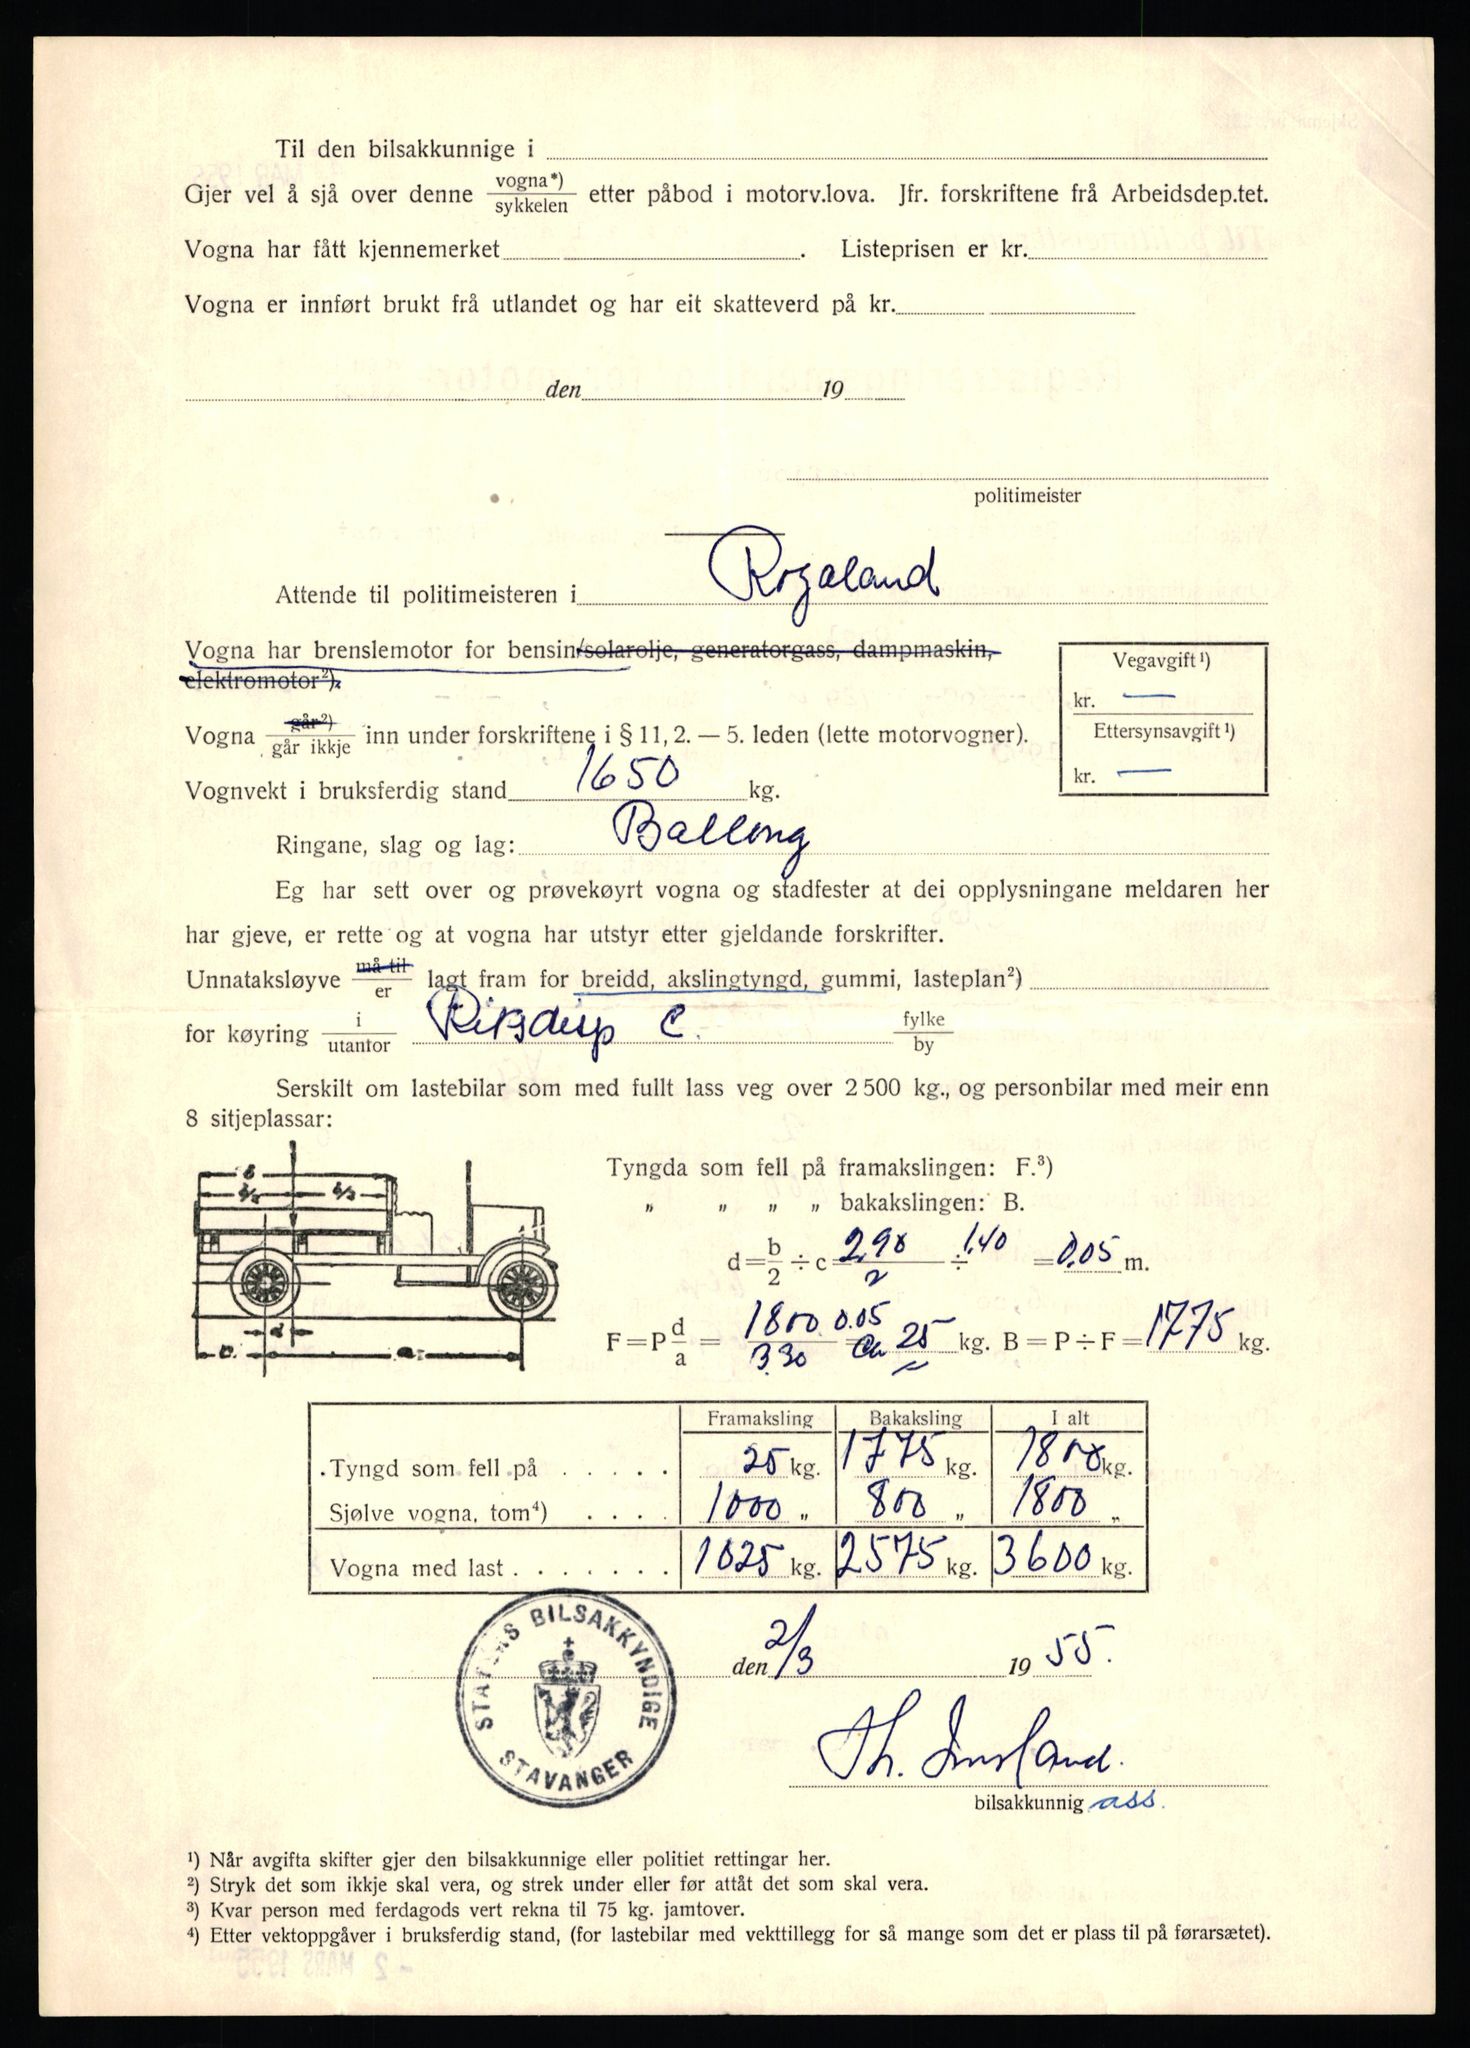 Til den bilsakkunnige i
Gjer vel å sjå over denne vogna*) / sykkelen etter påbod i motorv.lova. Jfr. forskriftene frå Arbeidsdep.tet.
Vogna har fått kjennemerket . Listeprisen er kr.
Vogna er innført brukt frå utlandet og har eit skatteverd på kr.
den 19
politimeister
Attende til politimeisteren i Rogaland
Vogna har brenslemotor for bensin/solarolje, generatorgass, dampmaskin,
elektromotor²).
Vegavgift¹)
kr. —
Ettersynsavgift¹)
kr. —
Vogna går²) / går ikkje inn under forskriftene i § 11, 2. — 5. leden (lette motorvogner).
Vognvekt i bruksferdig stand 1650 kg.
Ringane, slag og lag: Ballong
Eg har sett over og prøvekøyrt vogna og stadfester at dei opplysningane meldaren her
har gjeve, er rette og at vogna har utstyr etter gjeldande forskrifter.
Unnataksløyve må til / er lagt fram for breidd, akslingtyngd, gummi, lasteplan²)
for køyring i / utantor Riksdisp C. fylke / by
Serskilt om lastebilar som med fullt lass veg over 2 500 kg., og personbilar med meir enn
8 sitjeplassar:
Tyngda som fell på framakslingen: F.³)
„ „ „ „ bakakslingen: B.
d = b/2 ÷ c 2,90/2 ÷ 1,40 = 0,05 m.
F = P d/a = 1800 0.05 / 3.30 = ca 25 kg. B = P ÷ F = 1775 kg.
Framaksling Bakaksling I alt
Tyngd som fell på . . . . . 25 kg. 1775 kg. 1800 kg.
Sjølve vogna, tom⁴) . . . . 1000 „ 800 „ 1800 „
Vogna med last . . . . . . . 1025 kg. 2575 kg. 3600 kg.
STATENS BILSAKKYNDIGE STAVANGER
den 2/3 19 55.
Th.
bilsakkunnig ass.
¹) Når avgifta skifter gjer den bilsakkunnige eller politiet rettingar her.
²) Stryk det som ikkje skal vera, og strek under eller før attåt det som skal vera.
³) Kvar person med ferdagods vert rekna til 75 kg. jamtover.
⁴) Etter vektoppgåver i bruksferdig stand, (for lastebilar med vekttillegg for så mange som det er plass til på førarsætet).
- 2 MARS 1955